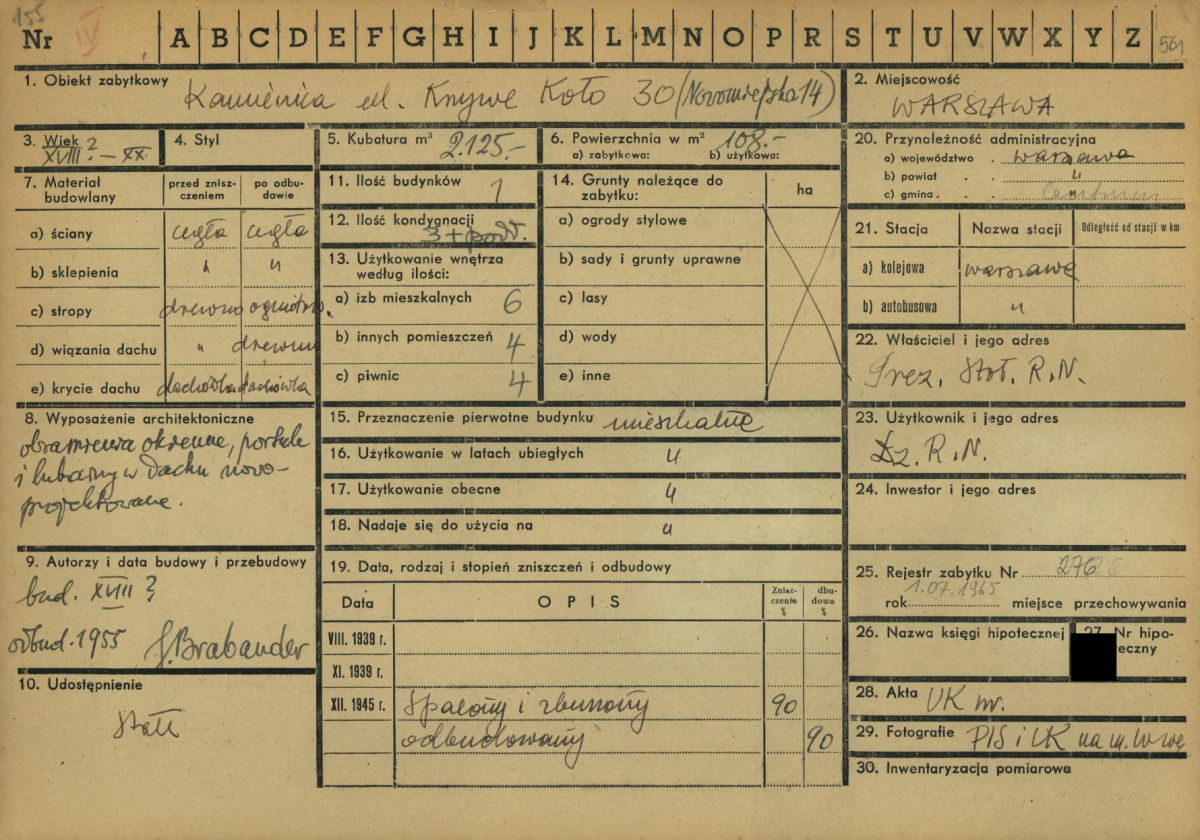 155
Nr IV A B C D E F G H I J K L M N O P R S T U V W X Y Z 561
1. Obiekt zabytkowy Kamienica ul. Krzywe Koło 30 (Nowomiejska 14)
2. Miejscowość
WARSZAWA
3. Wiek XVIII? – XX.
4. Styl
5. Kubatura m³ 2.125.-
6. Powierzchnia w m² 108.-
a) zabytkowa: b) użytkowa:
20. Przynależność administracyjna
a) województwo . warszawa
b) powiat . . "
c) gmina . . " Centrum
7. Materiał budowlany
przed zniszczeniem
po odbudowie
a) ściany cegła cegła
b) sklepienia " "
c) stropy drewno ogniotrw.
d) wiązania dachu " drewno
e) krycie dachu dachówka dachówka
11. Ilość budynków 1
12. Ilość kondygnacji
3 + podd.
13. Użytkowanie wnętrza według ilości:
a) izb mieszkalnych 6
b) innych pomieszczeń 4
c) piwnic 4
14. Grunty należące do zabytku:
ha
a) ogrody stylowe
b) sady i grunty uprawne
c) lasy
d) wody
e) inne
21. Stacja Nazwa stacji Odległość od stacji w km
a) kolejowa warszawa
b) autobusowa "
22. Właściciel i jego adres
Prez. Stoł. R.N.
8. Wyposażenie architektoniczne
obramienia okienne, portale
i lukarny w dachu nowo-
projektowane.
15. Przeznaczenie pierwotne budynku mieszkalne
16. Użytkowanie w latach ubiegłych "
17. Użytkowanie obecne "
18. Nadaje się do użycia na "
23. Użytkownik i jego adres
Dz. R.N.
24. Inwestor i jego adres
9. Autorzy i data budowy i przebudowy
bud. XVIII ?
odbud. 1955 S. Brabander
10. Udostępnienie
19. Data, rodzaj i stopień zniszczeń i odbudowy
Data OPIS Zniszczenie % dbudowa %
VIII. 1939 r.
XI. 1939 r.
XII. 1945 r. Spalony i zburzony 90
odbudowany 90
25. Rejestr zabytku Nr 276
1.07.1965
rok miejsce przechowywania
26. Nazwa księgi hipotecznej
27. Nr hipoteczny
28. Akta UK m.
29. Fotografie PIS i UK na m. W-wę
30. Inwentaryzacja pomiarowa